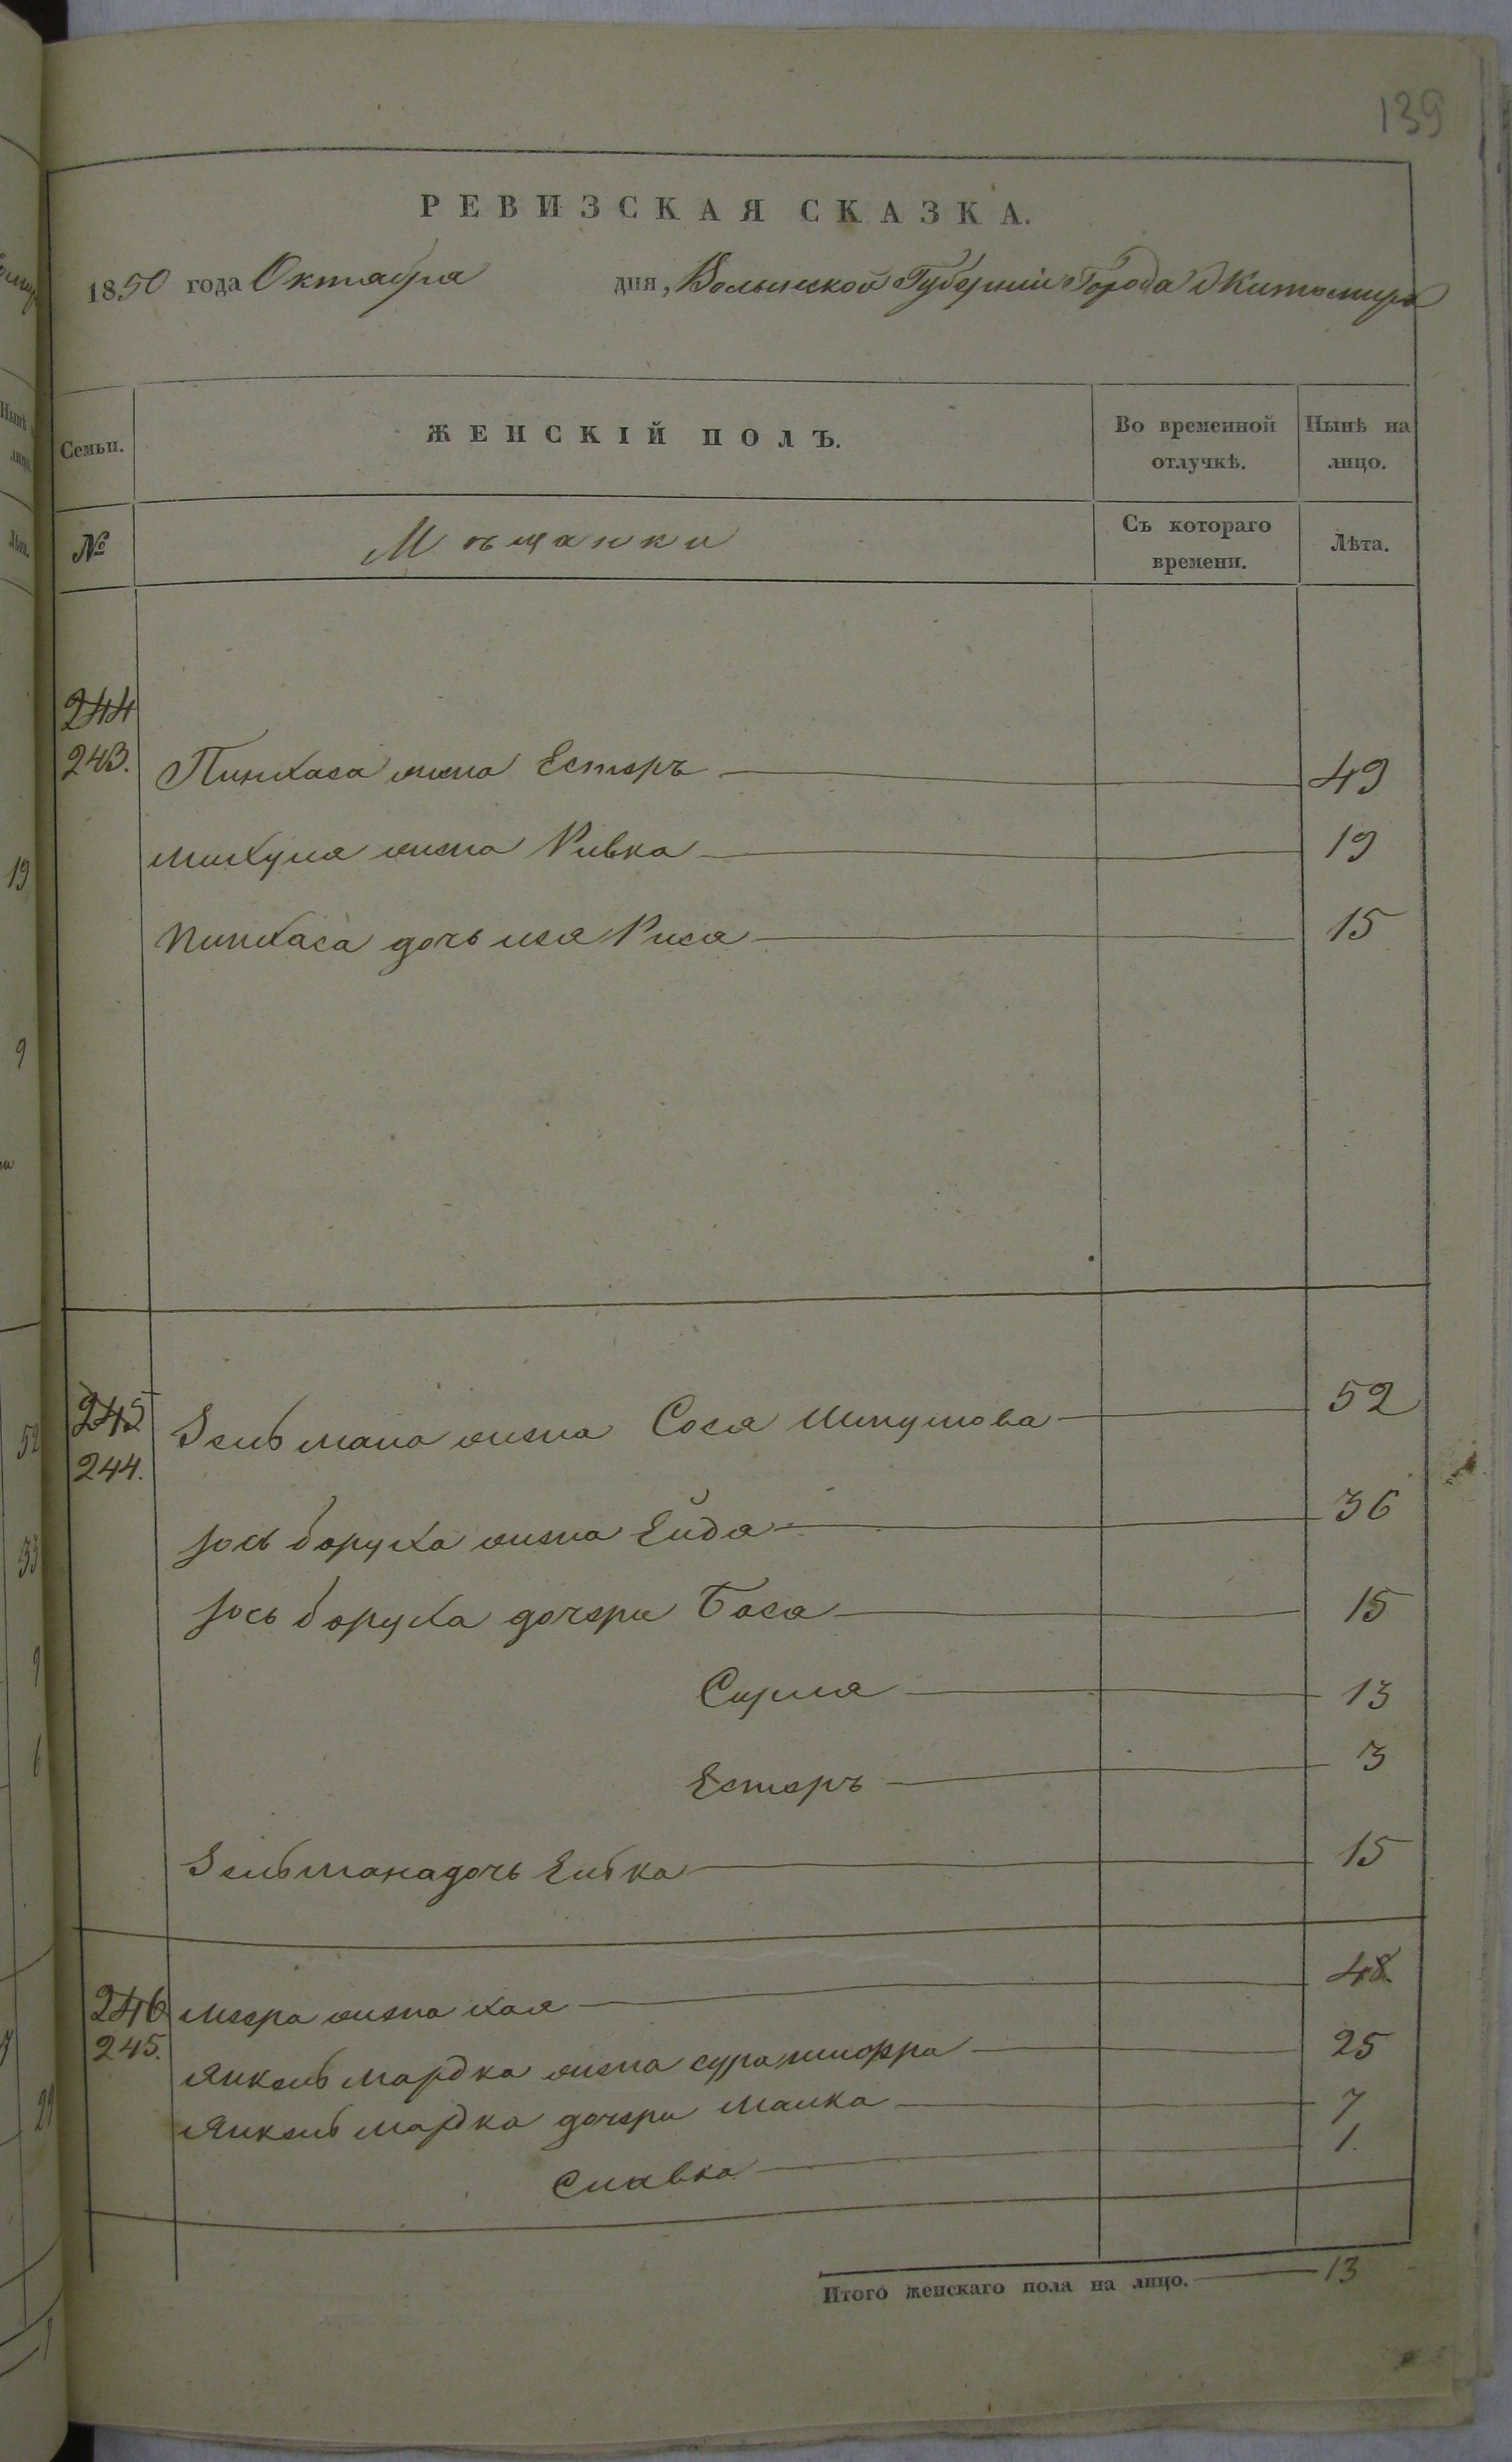 139
РЕВИЗСКАЯ СКАЗКА.
1850 года Октября дня, Волынской Губерніи Города Житомира
Семьи. ЖЕНСКІЙ ПОЛЪ. Во временной отлучкѣ. Нынѣ на лицо.
№ Мѣщанки Съ котораго времени. Лѣта.
244
243. Пинхаса жена Естеръ 49
Михуля жена Ривка 19
Пинхаса дочь Рися 15
245
244. Зельмана жена Сося 52
Іось боруха жена Ейдя 36
Іось боруха дочери Бася 15
Сирля 13
Естеръ 3
Зельмана дочь Еибка 15
246 Меера жена хая 48.
245. Янкель мардка жена сура шифра 25
Янкель мардка дочери Малка 7
Славка 1.
Итого женскаго пола на лицо. 13